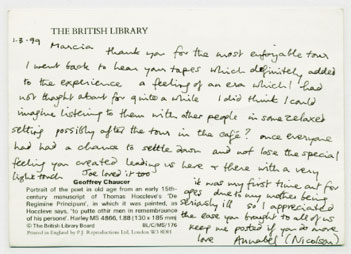 THE BRITISH LIBRARY
1.3.99 Marcia thank you for the most enjoyable tour
I went back to hear your tapes which definitely added
to the experience a feeling of an era which I had
not thought about for quite a while I did think I could
imagine listening to them with other people in some relaxed
setting possibly after the tour in the café? once everyone
had had a chance to settle down and not lose the special
feeling you created leading us here & there with a very
light touch Joe loved it too
Geoffrey Chaucer
Portrait of the poet in old age from an early 15th-
century manuscript of Thomas Hoccleve's 'De
Regimine Principum', in which it was painted, as
Hoccleve says, 'to putte other men in remembraunce
of his persone'. Harley MS 4866, f.88 (130 x 185 mm)
© The British Library Board BL/C/MS/176
Printed in England by P.J. Reproductions Ltd, London W3 8DH
it was my first time out for
ages due to my mother being
seriously ill so I appreciated
the ease you brought to all of us
keep me posted if you do more
love Annabel (Nicolson)